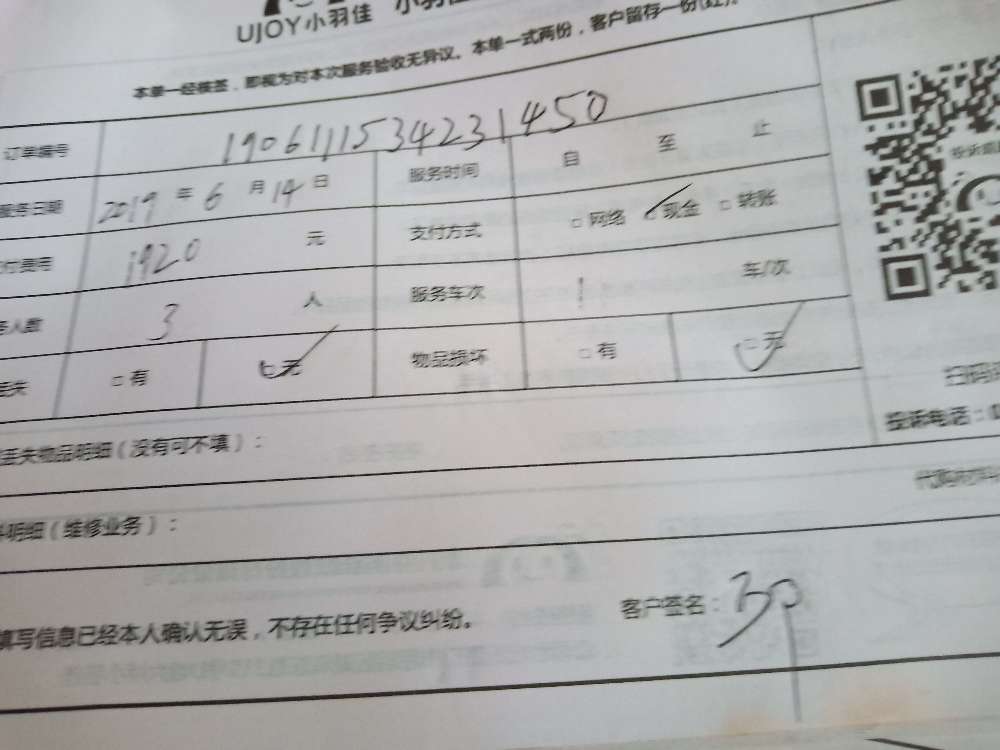 UJOY小羽佳 小羽佳
本单一经核签，即视为对本次服务验收无异议。本单一式两份，客户留存一份(红)。
订单编号 1906111534231450
服务日期 2019年6月14日 服务时间 自 至 止
付费用 1920 元 支付方式 □网络 □现金 □转账
人数 3 人 服务车次 1 车/次
丢失 □有 □无 物品损坏 □有 □无
扫码
投诉电话：
丢失物品明细（没有可不填）：
代购材料
料明细（维修业务）：
填写信息已经本人确认无误，不存在任何争议纠纷。 客户签名：